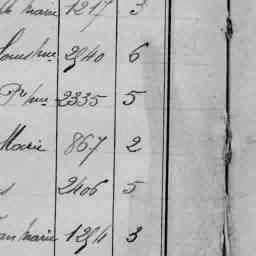 Marie 1217 3
Louis 2540 6
Pre 2335 5
Marie 867 2
2406 5
Jean Marie 1254 3